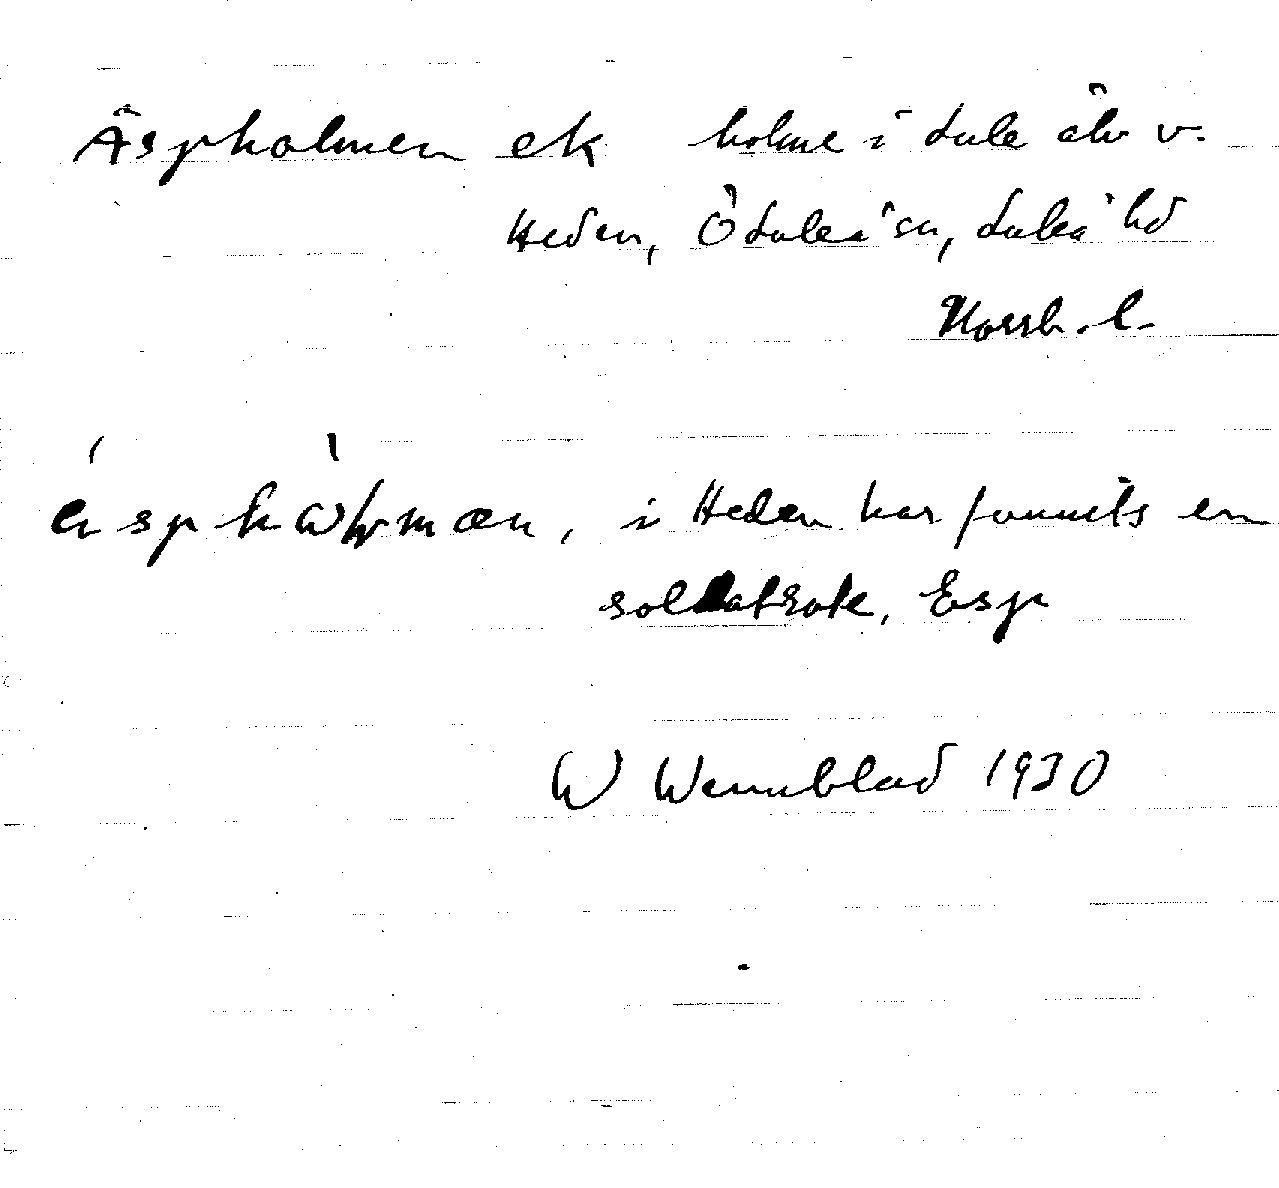 Äspholmen ek holme i Lule älv v.
Heden, Ö Luleå sn, Luleå hd
Norrb. l.
ä́sphὼɫmæn, i Heden har funnits en
soldatrote, Esp
W Wennblad 1930